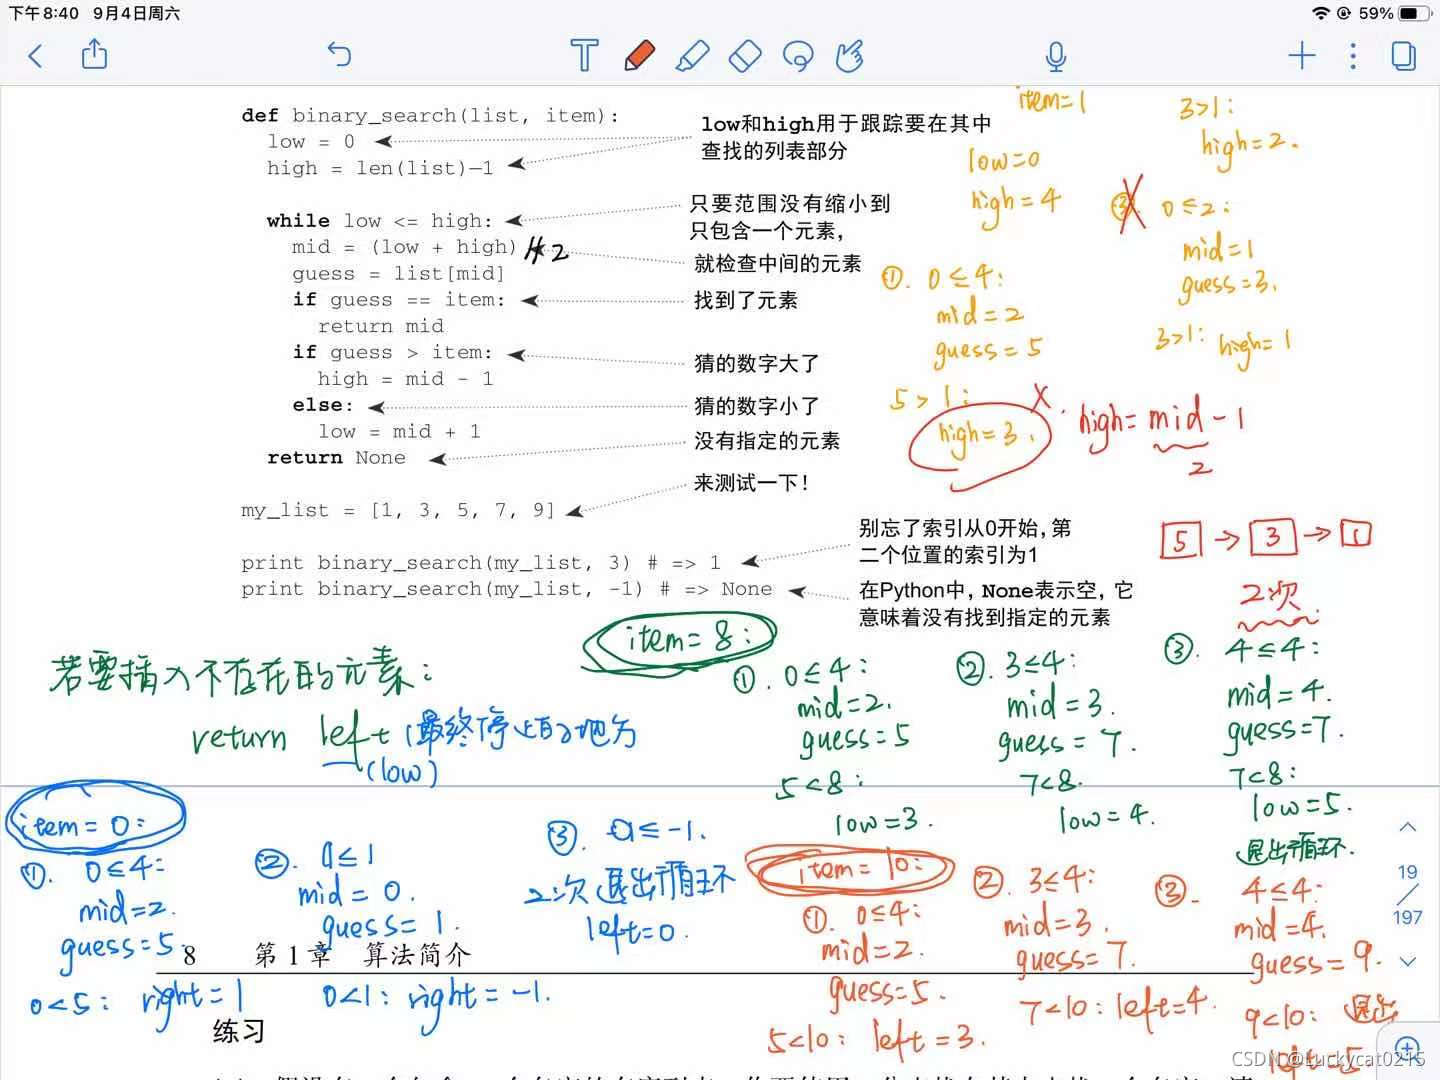 下午8:40 9月4日周六
59%
def binary_search(list, item):
low = 0
high = len(list)—1
low和high用于跟踪要在其中
查找的列表部分
while low <= high:
只要范围没有缩小到
只包含一个元素，
mid = (low + high) //2
就检查中间的元素
guess = list[mid]
if guess == item:
找到了元素
return mid
if guess > item:
猜的数字大了
high = mid - 1
else:
猜的数字小了
low = mid + 1
return None
没有指定的元素
my_list = [1, 3, 5, 7, 9]
来测试一下！
print binary_search(my_list, 3) # => 1
别忘了索引从0开始，第
二个位置的索引为1
print binary_search(my_list, -1) # => None
在Python中，None表示空，它
意味着没有找到指定的元素
item=1
low=0
high=4
①. 0≤4:
mid=2
guess=5
5>1:
high=3.
3>1:
high=2.
0≤2:
mid=1
guess=3.
3>1: high=1
high=mid-1
2
5→3→1
2次
若要插入不存在的元素:
return left (最终停止的地方
(low)
item=8:
①. 0≤4:
mid=2.
guess=5
5<8:
low=3.
②. 3≤4:
mid=3.
guess=7.
7<8.
low=4.
③. 4≤4:
mid=4.
guess=7.
7<8:
low=5.
退出循环.
item=0:
①. 0≤4:
mid=2.
guess=5.
0<5: right=1
②. 0≤1
mid=0.
guess=1.
0<1: right=-1.
③. 0≤-1.
2次 退出循环
left=0.
item=10:
①. 0≤4:
mid=2.
guess=5.
5<10: left=3.
②. 3≤4:
mid=3.
guess=7.
7<10: left=4.
③. 4≤4:
mid=4.
guess=9.
9<10: 退出
left=5
19
197
8 第1章 算法简介
练习
CSDN @Luckycat0215